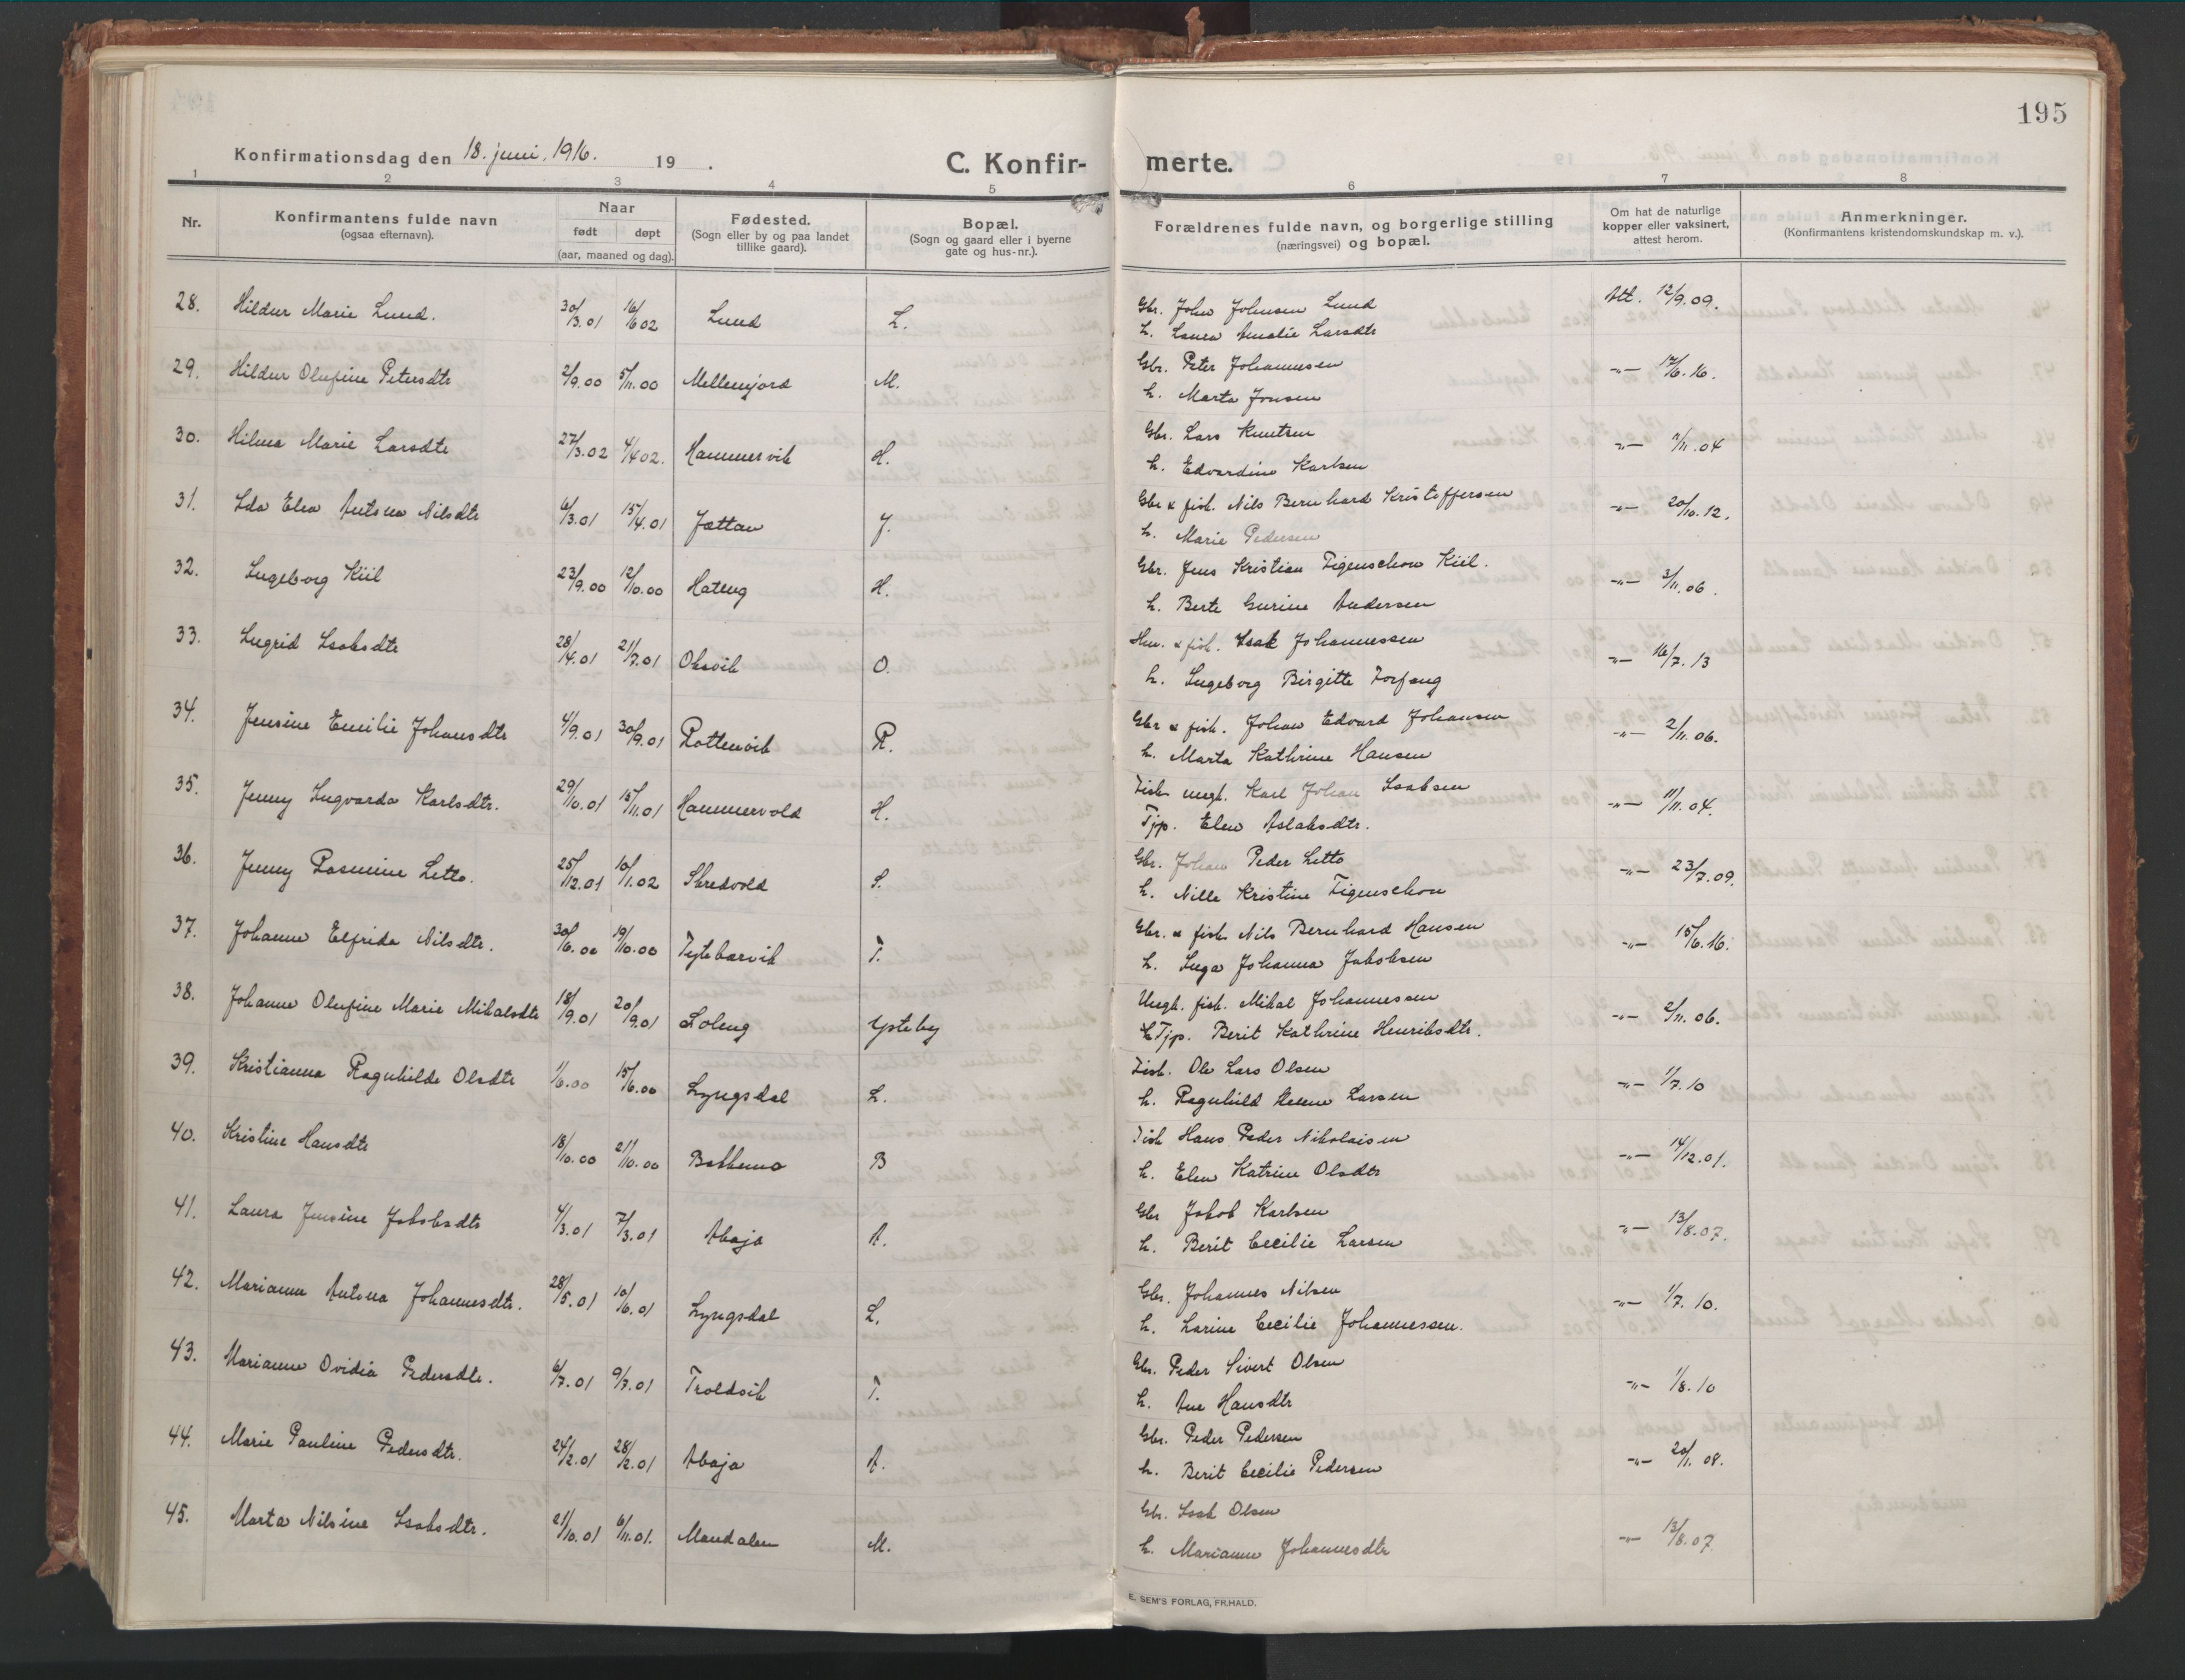 195
Konfirmationsdag den 18. juni, 1916. 19 .
C. Konfirmerte.
1 2 3 4 5 6 7 8
Nr.
Konfirmantens fulde navn
(ogsaa efternavn).
Naar
født døpt
(aar, maaned og dag).
Fødested.
(Sogn eller by og paa landet
tillike gaard).
Bopæl.
(Sogn og gaard eller i byerne
gate og hus-nr.).
Forældrenes fulde navn, og borgerlige stilling
(næringsvei) og bopæl.
Om hat de naturlige
kopper eller vaksinert,
attest herom.
Anmerkninger.
(Konfirmantens kristendomskundskap m. v.).
28. Hildur Marie Lund. 30/3.01 16/6 02 Lund L. Gbr. Johan Johnsen Lund Att. 12/9.09.
h. Laura Amalie Larsdtr
29. Hildur Olufine Petersdtr 2/9.00 5/11.00 Mellemjord M. Gbr. Peter Johannesen -"- 17/6.16.
h. Marta Jonsen
30. Hilma Marie Larsdtr 27/3.02 4/4 02. Hammervik H. Gbr. Lars Knutsen -"- 11/11.04
h. Edvardine Karlsen
31. Ida Elea Antona Nilsdtr 6/3.01 15/4.01 Jættan J. Gbr & fisk. Nils Bernhard Kristoffersen -"- 20/10.12.
h. Marie Pedersen
32. Ingeborg Kiil 23/9.00 12/10.00 Hateng H. Gbr. Jens Kristian Figenschou Kiil. -"- 3/11.06.
h. Berte Gurine Andersen
33. Ingrid Isaksdtr 28/4.01 21/7.01 Oksvik O. Hm. & fisk. Isak Johannessen -"- 16/7.13
h. Ingeborg Birgitte Torfang
34. Jensine Emilie Johansdtr 4/9.01 30/9.01 Rottenvik R. Gbr & fisk. Johan Edvard Johansen -"- 2/11.06.
h. Marta Kathrine Hansen
35. Jenny Ingvarda Karlsdtr. 29/10.01 15/11.01 Hammervold H. Fisk ungk. Karl Johan Isaksen -"- 11/11.04.
Tjp. Elen Aslaksdtr.
36. Jenny Rasmine Letto. 25/12.01 10/1.02 Skredvold S. Gbr. Johan Peder Letto -"- 23/7.09.
h. Nille Kristine Figenschou
37. Johanne Elfrida Nilsdtr. 30/6.00 19/10.00 Tytebærvik T. Gbr. & fisk Nils Bernhard Hansen -"- 15/6.16.
h. Inga Johanna Jakobsen
38. Johanne Olufine Marie Mikalsdtr 18/9.01 20/9.01 Loleng Ysteby Ungk. fisk. Mikal Johannessen -"- 2/11.06.
Tjp. Berit Kathrine Henriksdtr.
39. Kristianna Ragnhilda Olsdtr 1/6.00 15/6.00 Lyngsdal L. Fisk. Ole Lars Olsen -"- 1/7.10
h. Ragnhild Helene Larsen
40. Kristine Hansdtr 18/10.00 21/10.00 Bakkemo B Fisk Hans Peder Nikolaisen -"- 14/12.01.
h. Elen Katrine Olsdtr
41. Laura Jensine Jakobsdtr 4/3.01 7/3.01 Abaja A. Gbr Jakob Karlsen -"- 13/8.07.
h. Berit Cecilie Larsen
42. Marianne Antona Johannesdtr. 28/5.01 10/6.01 Lyngsdal L. Gbr. Johannes Nilsen -"- 1/7.10.
h. Larine Cecilie Johannessen.
43. Marianne Ovidia Pedersdtr. 6/7.01 9/7.01 Troldvik T. Gbr. Peder Sivert Olsen -"- 1/8.10
h. Ane Hansdtr
44. Marie Pauline Pedersdtr. 24/2.01 28/2.01 Abaja A. Gbr. Peder Pedersen -"- 20/1.08.
h. Berit Cecilie Pedersen
45. Marta Nilsine Isaksdtr. 21/10.01 6/11.01. Mandalen M. Gbr. Isak Olsen -"- 13/8.07
h. Marianne Johannesdtr
E. SEM'S FORLAG, FR.HALD.